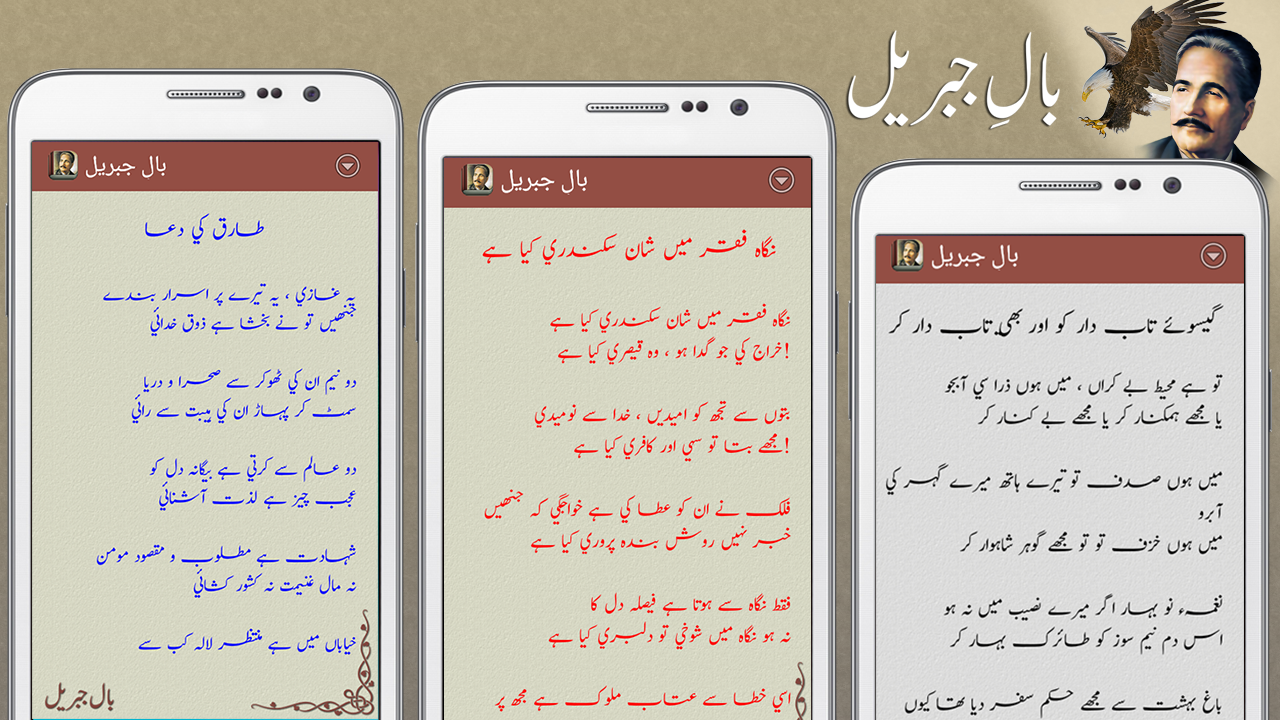 بالِ جبریل
بال جبریل
طارق کي دعا
یہ غازي ، یہ تیرے پر اسرار بندے
جنھیں تو نے بخشا ہے ذوق خدائي
دو نیم ان کي ٹھوکر سے صحرا و دریا
سمٹ کر پہاڑ ان کي ہیبت سے رائي
دو عالم سے کرتي ہے بیگانہ دل کو
عجب چیز ہے لذت آشنائي
شہادت ہے مطلوب و مقصود مومن
نہ مال غنیمت نہ کشور کشائي
خیاباں میں ہے منتظر لالہ کب سے
بال جبریل
بال جبریل
نگاہ فقر میں شان سکندري کیا ہے
نگاہ فقر میں شان سکندري کیا ہے
خراج کي جو گدا ہو ، وہ قیصري کیا ہے!
بتوں سے تجھ کو امیدیں ، خدا سے نومیدي
مجھے بتا تو سہي اور کافري کیا ہے!
فلک نے ان کو عطا کي ہے خواجگي کہ جنھیں
خبر نہیں روش بندہ پروري کیا ہے
فقط نگاہ سے ہوتا ہے فیصلہ دل کا
نہ ہو نگاہ میں شوخي تو دلبري کیا ہے
اسي خطا سے عتاب ملوک ہے مجھ پر
بال جبریل
گیسوئے تاب دار کو اور بھي تاب دار کر
تو ہے محیط بے کراں ، میں ہوں ذرا سي آبجو
یا مجھے ہمکنار کر یا مجھے بے کنار کر
میں ہوں صدف تو تیرے ہاتھ میرے گہر کي
آبرو
میں ہوں خزف تو تو مجھے گوہر شاہوار کر
نغمہء نو بہار اگر میرے نصیب میں نہ ہو
اس دم نیم سوز کو طائرک بہار کر
باغ بہشت سے مجھے حکم سفر دیا تھا کیوں